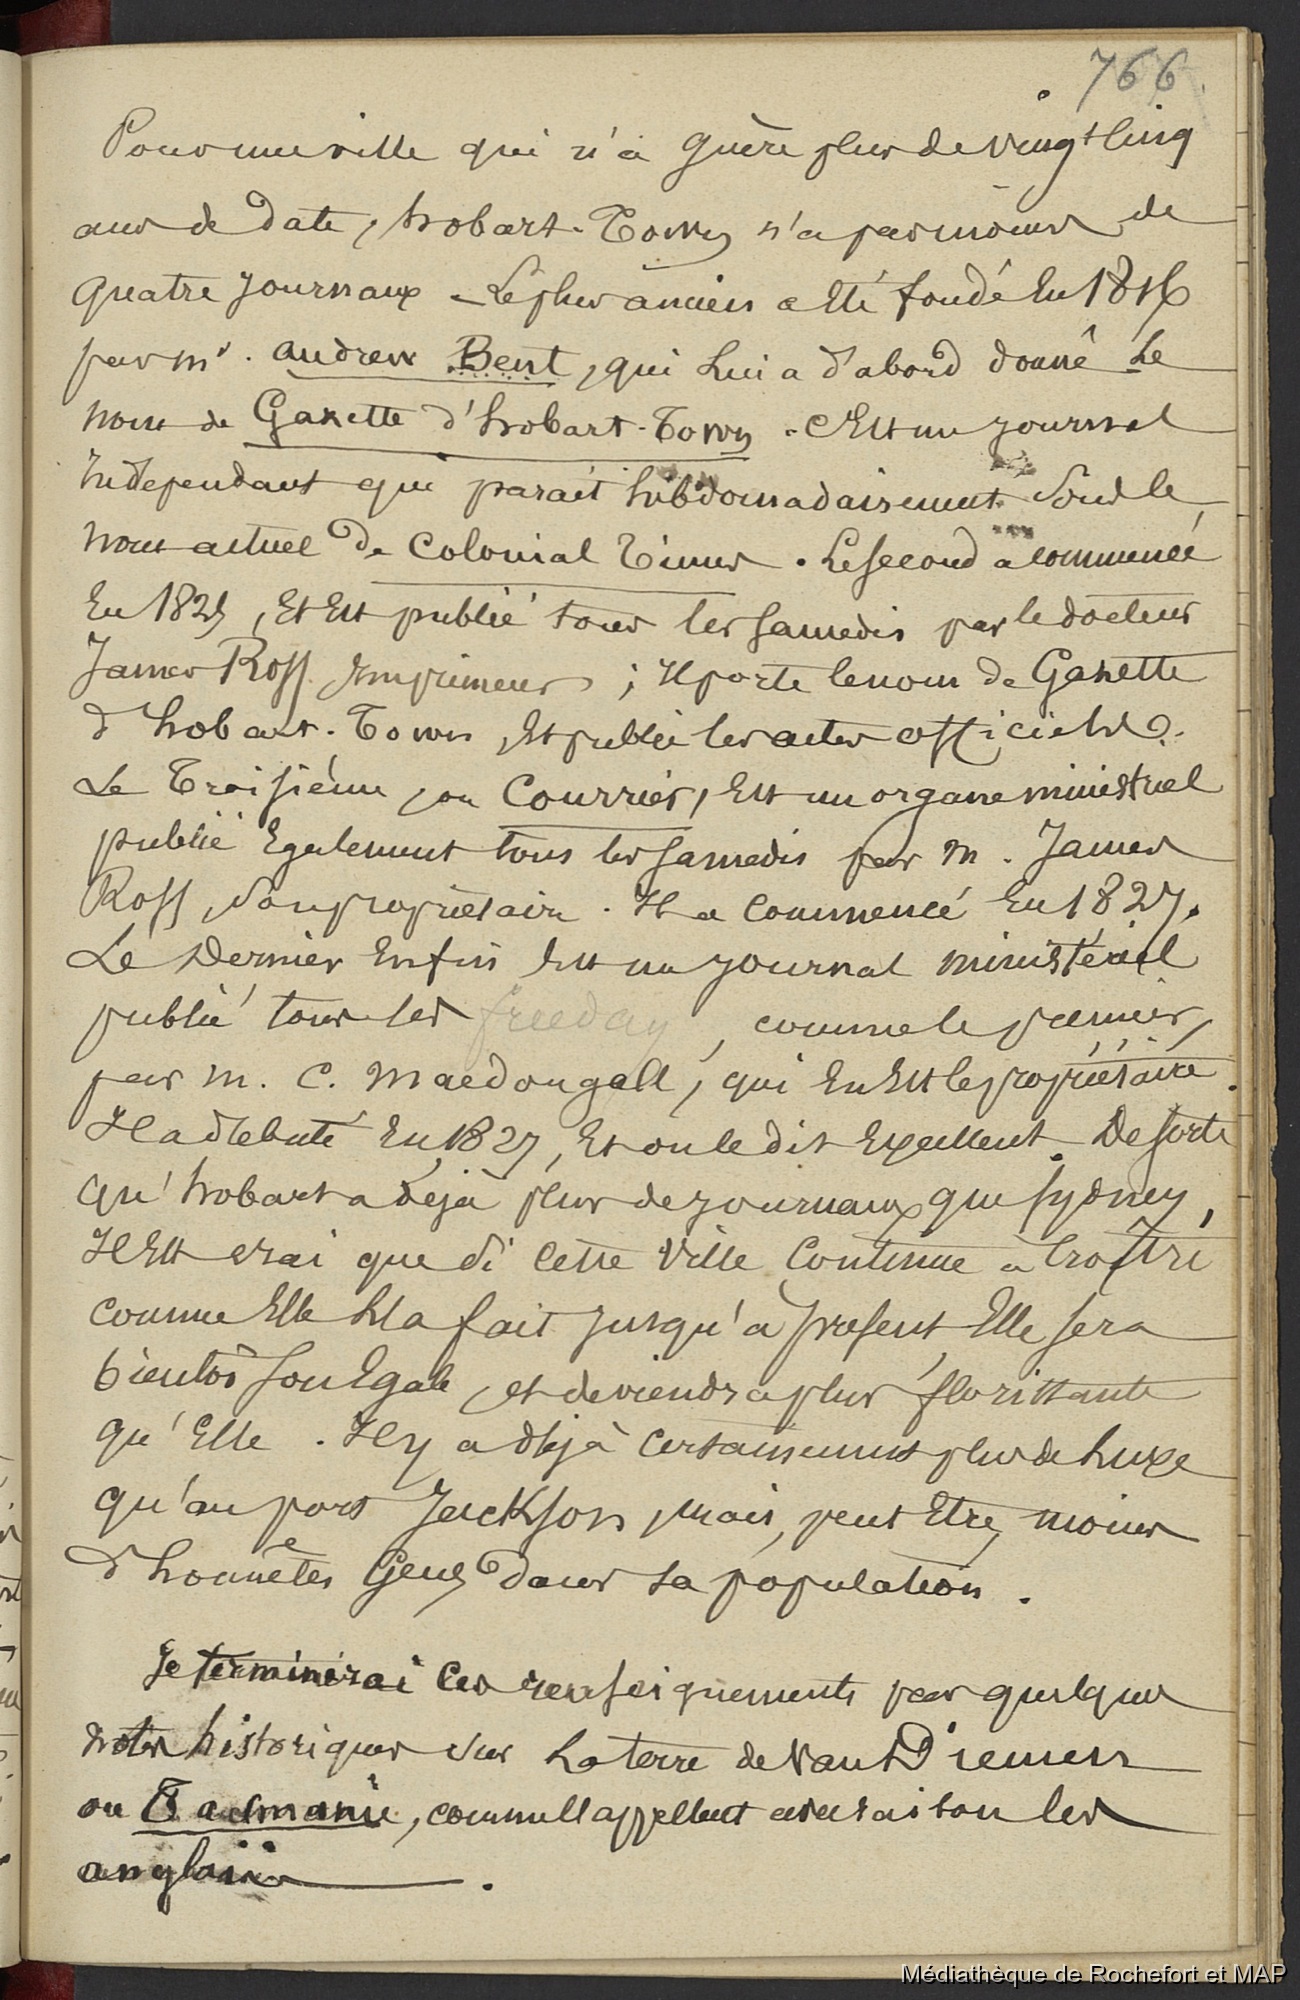 766.
Pour une ville qui n'a guère plus de vingt cinq
ans de date, hobart-Town n'a pas moins de
quatre journaux - Le plus ancien a Eté fondé En 1816
par mr. andrew Bent, qui lui a d'abord donné le
nom de Gazette d'hobart-Town. C'Est un journal
independant qui parait hebdomadairement sous le
nom actuel de Colonial Times. Le second a commencé
En 1825, Et Est publié tous les samedis par le docteur
James Ross Imprimeur ; Il porte le nom de Gazette
d'hobart-Town, Et publie les actes officiels.
Le Troisième, ou Courrier, Est un organe ministriel
publié Egalement tous les samedis par m. James
Ross, son propriètaire. Il a Commencé En 1827.
Le Dernier Enfin Est un journal ministériel
publié tous les freeday, comme le premier,
par m. C. Macdougall, qui En Est le propriétaire.
Il a debuté En 1827, Et on le dit Excellent. De sorte
qu'hobart a déjà plus de journaux que sydney,
Il Est vrai que si cette Ville Continue à Croître
comme Elle l'a fait jusqu'a present, Elle sera
bientôt son Egale, et deviendra plus florissante
qu'Elle. Il y a déjà certainement plus de luxe
qu'au port Jackson, mais, peut Etre, moins
d'honnêtes Gens dans sa population.
Je terminerai Ces renseignements par quelques
notes historiques sur la terre de Van Diemen
ou Tasmanie, comme ll'appellent avec raison les
anglais.
Médiathèque de Rochefort et MAP